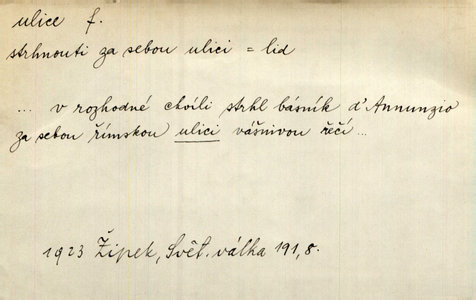 ulice f.
strhnouti za sebou ulici = lid
... v rozhodné chvíli strhl básník d'Annunzio
za sebou římskou ulici vášnivou řečí ...
1923 Žipek, Svět. válka 191, 8.